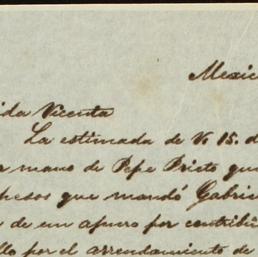 Mexic
ida Vicenta
La estimada de V. 15. d
r mano de Pepe Prieto que
pesos que mandó Gabrie
a de un apuro por contribu
llo por el arrendamiento de